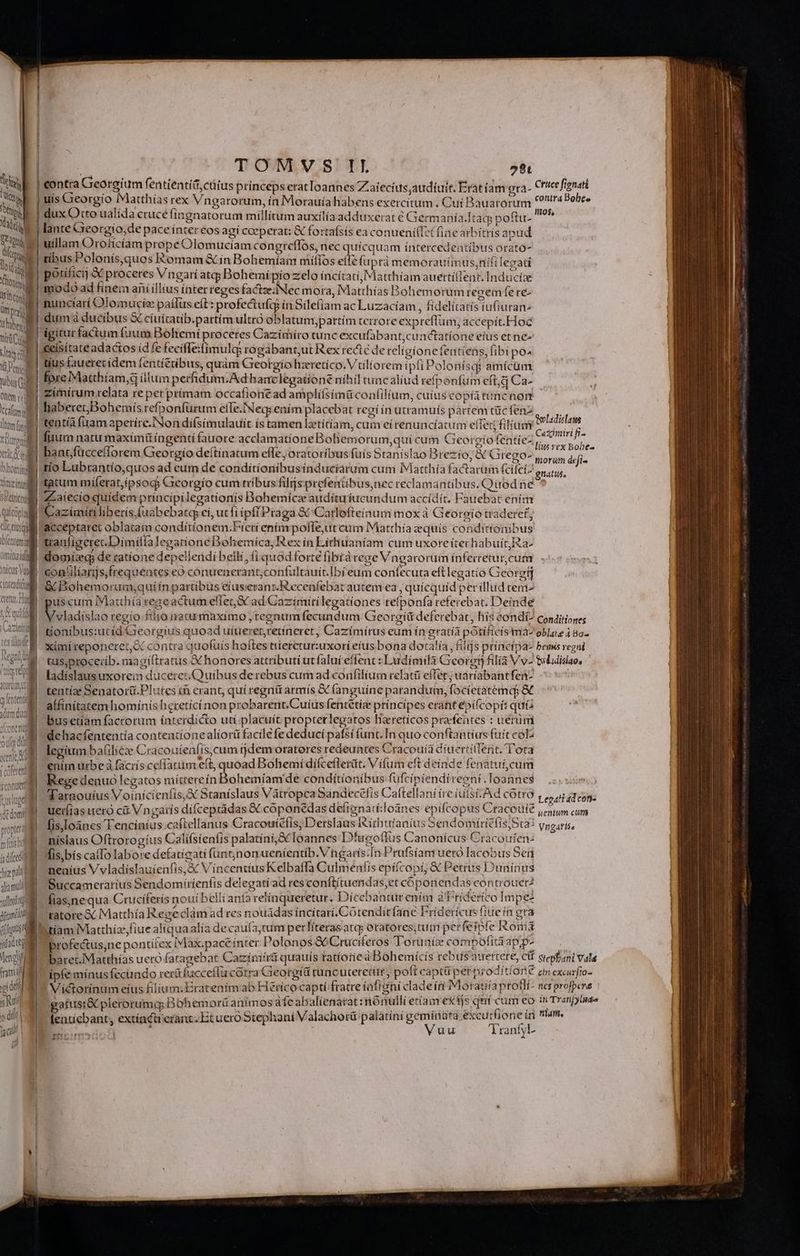 TOMVS II. 781
contra Georgium sentientiũ, cuius princeps erat Ioannes Zaiecius, audiuit. Erat iam gra-
uis Georgio Matthias rex Vngarorum, in Morauia habens exercitum. Cui Bauarorum
dux Otto ualida cruce singnatorum millitum auxilia adduxerat è Germania. Itaq; postu-
lante Georgio, de pace inter eos agi cœperat: & fortassis ea conuenisset sine arbitris apud
uillam Orosiciam prope Olomuciam congressos, nec quicquam intercedentibus orato-
ribus Polonis, quos Romam & in Bohemiam missos esse supra memorauimus, nisi legati
põtificij & proceres Vngari atq; Bohemi pio zelo incitati, Matthiam auertissent. Induciæ
modò ad finem añi illius inter reges factæ. Nec mora, Matthias Bohemorum regem fe re-
nunciari Olomuciæ passus est: profectusq; in Silesiam ac Luzaciam, fidelitatis iusiuran-
dum à ducibus & ciuitatib. partim ultrò oblatum, partim terrore expressum, accepit. Hoc
igitur factum suum Bohemi proceres Cazimiro tunc excusabant, cunctatione eius et ne-
cessitate adactos id se fecisse: simulq; rogabant, ut Rex rectè de religione sentiens, sibi po-
tius faueret idem sentiētibus, quàm Georgio hæretico. Vtiliorem ipsi Polonisq; amicum
fore Matthiam, q̃ illum perfidum. Ad hanc legationē nihil tunc aliud responsum est, q̃ Ca-
zimirum relata re per primam occasionē ad amplissimũ consilium, cuius copiã tũc non
haberet, Bohemis responsurum esse. Neq; enim placebat regi in utramuis partem tũc sen-
tentiã suam aperire. Non dissimulauit is tamen lætitiam, cum ei renunciatum esset, filium
suum natu maximũ ingenti fauore acclamatione Bohemorum, qui cum Georgio sentie-
bant, successorem Georgio destinatum esse, oratoribus suis Stanislao Brezio, & Grego-
rio Lubrantio, quos ad eum de conditionibus induciarum cum Matthia factarum scisci-
tatum miserat, ipsoq; Georgio cum tribus filijs præsentibus, nec reclamantibus. Quod ne
Zaiecio quidem principi legationis Bohemicæ auditu iucundum accidit. Fauebat enim
Cazimiri liberis, suadebatq; ei, ut si ipsi Praga & Carlosteinum mox à Georgio traderet̃,
acceptaret oblatam conditionem. Fieri enim posse, ut cum Matthia æquis conditionibus
transigeret. Dimissa legatione Bohemica, Rex in Lithuaniam cum uxore iter habuit. Ra-
domiæq; de ratione depellendi belli, si quod forte sibi à rege Vngarorum inferretur, cum
consiliarijs, frequentes eò conuenerant, consultauit. Ibi eum consecuta est legatio Georgij
& Bohemorum, qui in partibus eius erant. Recensebat autem ea, quicquid per illud tem-
pus cum Matthia rege actum esset, & ad Cazimiri legationes responsa referebat. Deinde
Vvladislao regio filio natu maximo, regnum secundum Georgiũ deferebat, his condi-
tionibus: ut id Georgius quoad uiueret, retineret, Cazimirus eum in gratiã põtificis ma-
ximi reponeret, & contra quosuis hostes tueretur: uxori eius bona dotalia, filijs principa-
tus, procerib. magistratus & honores attributi ut salui essent: Ludimilã Georgij filiã Vv-
ladislaus uxorem duceret. Quibus de rebus cum ad consilium relatũ esset, uariabant sen-
tentiæ Senatorũ. Plures iñ erant, qui regnũ armis & sanguine parandum, societatemq; &
affinitatem hominis hæretici non probarent. Cuius sentētiæ principes erant episcopi: qui-
bus etiam sacrorum interdicto uti placuit propter legatos hæreticos præsentes: uerùm
de hac sententia contentione aliorũ facilè se deduci passi sunt. In quo constantius fuit col-
legium basilicæ Cracouiensis, cum ijdem oratores redeuntes Cracouiã diuertissent. Tota
enim urbe à sacris cessatum est, quoad Bohemi discesserūt. Visum est deinde senatui, cum
Rege denuò legatos mittere in Bohemiam de conditionibus suscipiendi regni. Ioannes
Tarnouius Voinicieñsis, & Stanislaus Vatropca Sandecẽsis Castellani ire iussi. Ad cõtro
uersias uerò cũ Vngaris disceptãdas & cõponẽdas designati: Ioãnes episcopus Cracouiẽ
sis, Ioãnes Tenciniũs castellanus Cracouiẽsis, Derslaus Rithuianius Sendomiriẽsis, Sta-
nislaus Ostrorogius Calissiensis palatini, & Ioannes Dlugossus Canonicus Cracouien-
sis, bis casso labore defatigati sunt, non uenientib. Vngaris. In Prussiam uerò Iacobus Sen
nenius Vvladislauiensis, & Vincentius Kelbassa Culmensis episcopi, & Petrus Duninus
Succamerarius Sendomiriensis delegati ad res constituendas, et cõponendas controuer-
sias, nequa Cruciferis noui belli ansa relinqueretur. Dicebantur enim à Friderico Impe-
ratore & Matthia Rege clàm ad res nouãdas incitari. Cõtendit sane Fridericus siue in gra
tiam Matthiæ, siue aliqua alia de causa, tum per literas atq; oratores, tum per se ipse Romã
profectus, ne pontifex Max. pacẽ inter Polonos & Cruciferos Toruniæ compositã app-
baret. Matthias uerò satagebat Cazimirũ quauis ratione à Bohemicis rebus auertere, cũ
ipse minus fecundo rerũ successu cõtra Georgiũ tunc uteretur, post captũ per proditionẽ
Victorinum eius filium. Erat enim ab Hērico capti fratre insigni clade in Morauia profli-
gatus: & plerorumq; Bohemorũ animos à se abalienarat: nõnulli etiam ex ijs qui cum eo
sentiebant, extincti erant. Et uerò Stephani Valachorũ palatini geminata excursione in
Vuu Transyl-
Cruce signati
contra Bohe-
mos.
Vvladislaus
Cazimiri fi-
lius rex Bohe-
morum desi-
gnatus.
Conditiones
oblatæ à Bo-
hemis regni
Vvladislao.
Legati ad con-
uentum cum
Vngaris.
Stephani Vala
chi excursio-
nes prosperæ
in Transylua-
niam.